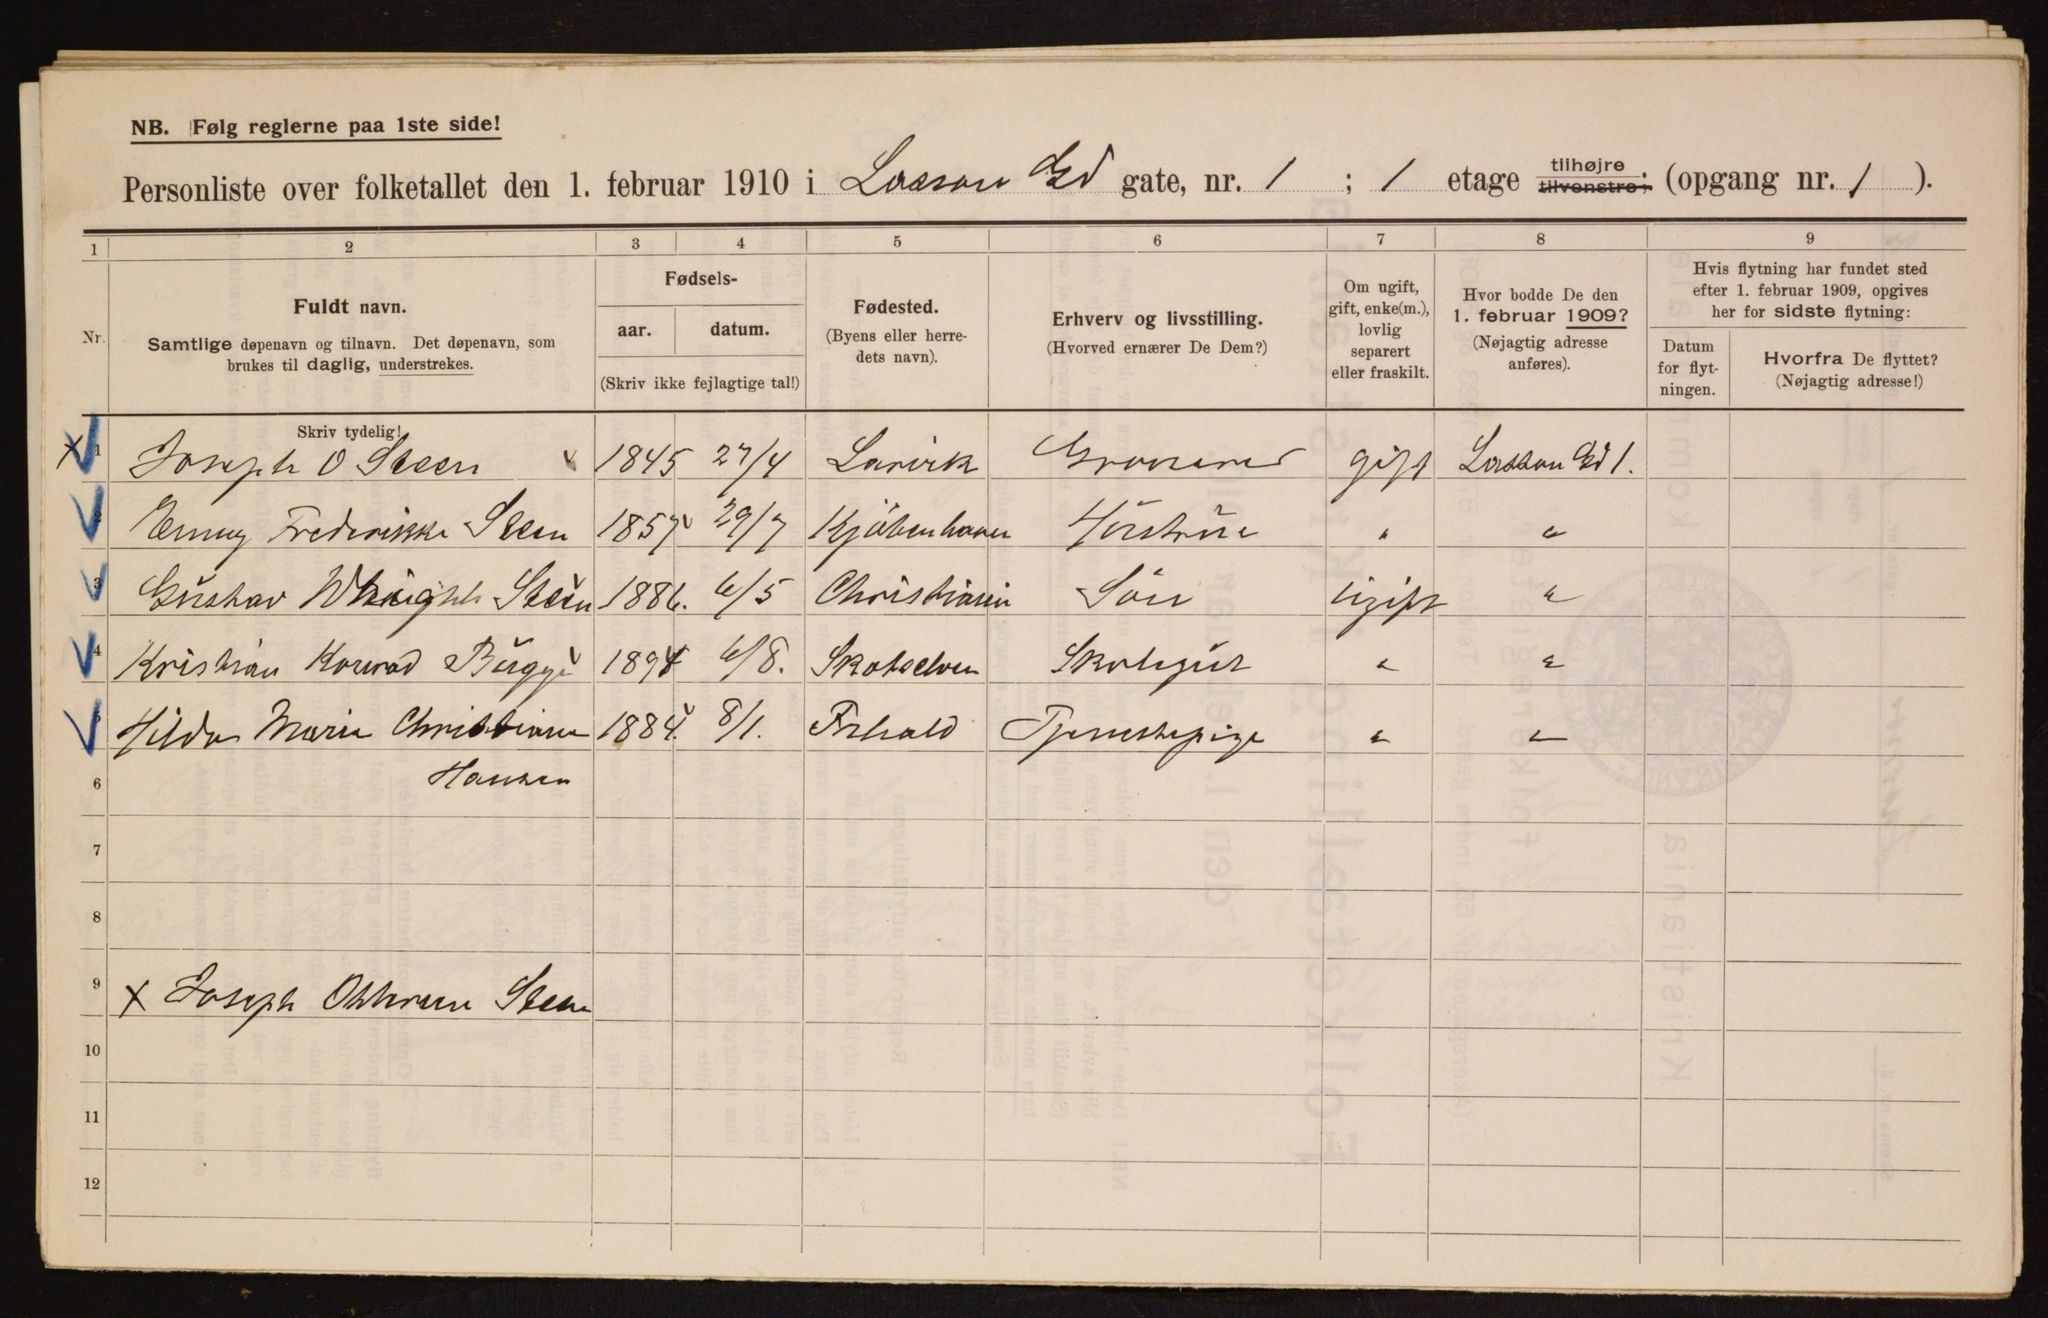 NB. Følg reglerne paa 1ste side!
Personliste over folketallet den 1. februar 1910 i Lasson Gd gate, nr. 1 ; 1 etage tilhøjre tilvenstre; (opgang nr. 1 ).
1 2 3 4 5 6 7 8 9
Nr.
Fuldt navn.
Samtlige døpenavn og tilnavn. Det døpenavn, som
brukes til daglig, understrekes.
Fødsels-
aar. datum.
(Skriv ikke fejlagtige tal!)
Fødested.
(Byens eller herre-
dets navn).
Erhverv og livsstilling.
(Hvorved ernærer De Dem?)
Om ugift,
gift, enke(m.),
lovlig
separert
eller fraskilt.
Hvor bodde De den
1. februar 1909?
(Nøjagtig adresse
anføres).
Hvis flytning har fundet sted
efter 1. februar 1909, opgives
her for sidste flytning:
Datum
for flyt-
ningen.
Hvorfra De flyttet?
(Nøjagtig adresse!)
Skriv tydelig!
x 1 Joseph O Steen 1845 27/4 Larvik gift Lasson Gd 1.
2 Emmy Frederikke Steen 1857 29/7 Kjöbenhavn Hüstrüe " "
3 Güstav Steen 1886. 6/5 Christiania Sön ügift "
4 Kristian Konrad Bügge 1894 6/8. Skotselven Skolegüt " "
5 Hilda Marie Christiane 1884. 8/1. Frhald Tjenestepige " "
Hansen
6
7
8
9
x Joseph Steen
10
11
12